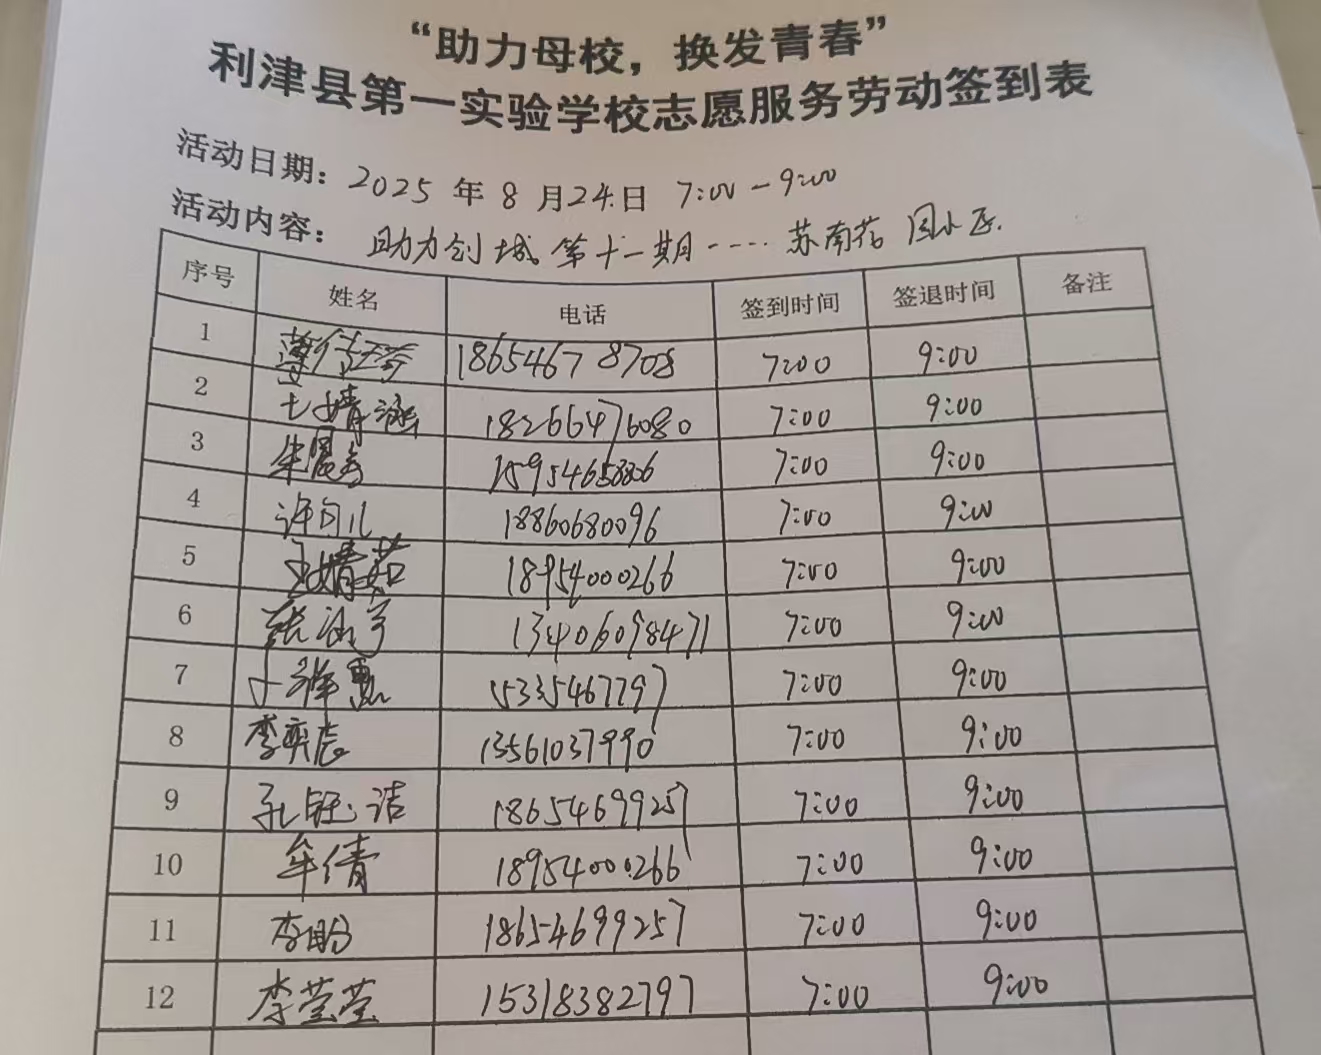 “助力母校，换发青春”
利津县第一实验学校志愿服务劳动签到表
活动日期：2025 年 8 月24日 7:00－9:00
活动内容： 助力创城 第十一期－－…… 苏南花园小区.
序号 姓名 电话 签到时间 签退时间 备注
1 18654678708 7:00 9:00
2 王婧涵 18266476080 7:00 9:00
3 15954658806 7:00 9:00
4 许向儿 18860680096 7:00 9:00
5 王婧茹 18954000266 7:00 9:00
6 张涵宇 13406098471 7:00 9:00
7 15335467797 7:00 9:00
8 李奕辰 13561037990 7:00 9:00
9 孔钰洁 18654699257 7:00 9:00
10 牟倩 18954000266 7:00 9:00
11 李盼 18654699257 7:00 9:00
12 李莹莹 15318382797 7:00 9:00